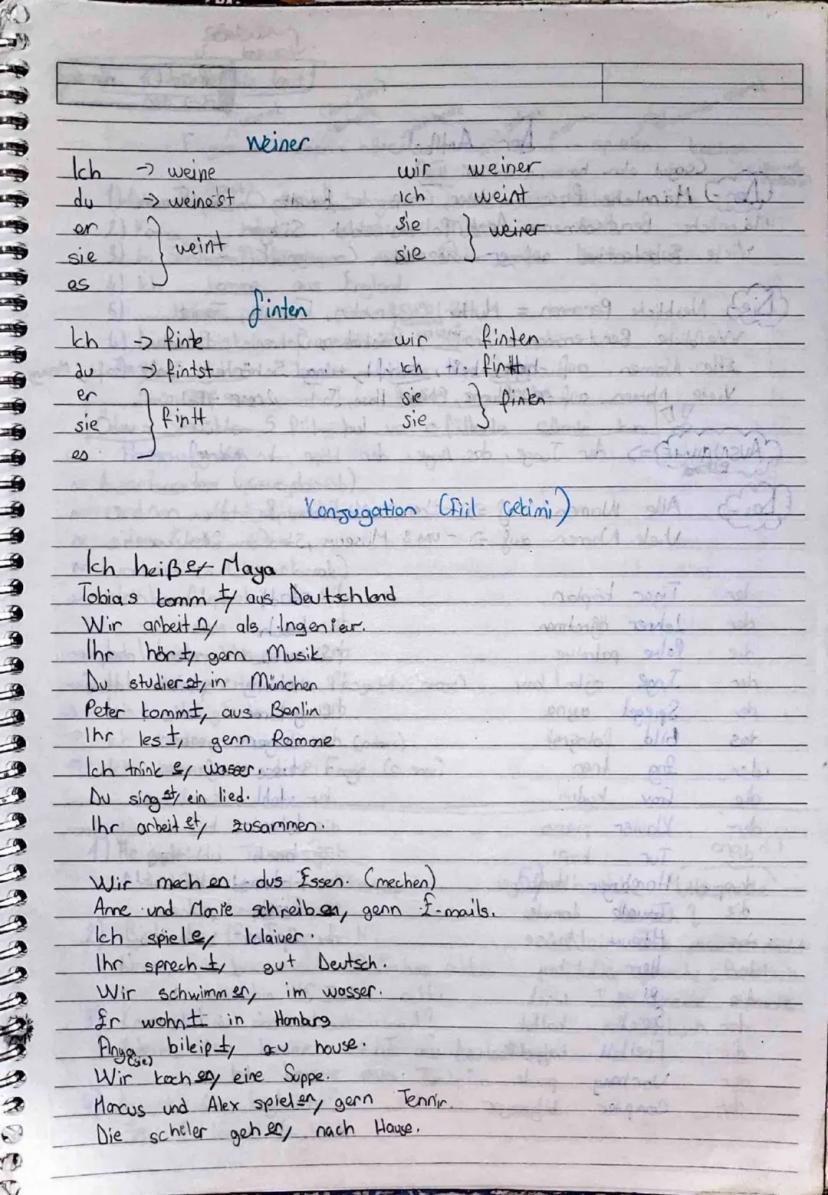 Weiner
Ich -> weine wir weiner
du -> weinest ich weint
er sie weirer
sie veint sie
es
finten
Ich -> finte wir finten
du -> fintst ich fintt
er sie finten
sie fintt sie
es
Konzugation (Fiil Çekimi)
Ich heißer Maya
Tobias kommt, aus Deutschland
Wir arbeitn, als Ingenier.
Ihr hört, gern Musik
Du studierst, in München
Peter kommt, aus Berlin
Ihr lest, genn Romme
Ich trink e, wasser.
Du singst, ein lied.
Ihr arbeitet, zusammen.
Wir mechen dus Essen. (mechen)
Anne und Marie schreiben, genn E-mails.
Ich spiele, Klaiver.
Ihr sprecht, gut Deutsch.
Wir schwimmen, im wasser.
Er wohnt in Hamburg
Anya (sie) bileipt, zu house.
Wir kochen, eine Suppe.
Marcus und Alex spielen, gern Tennir.
Die scheler gehen, nach Hause.